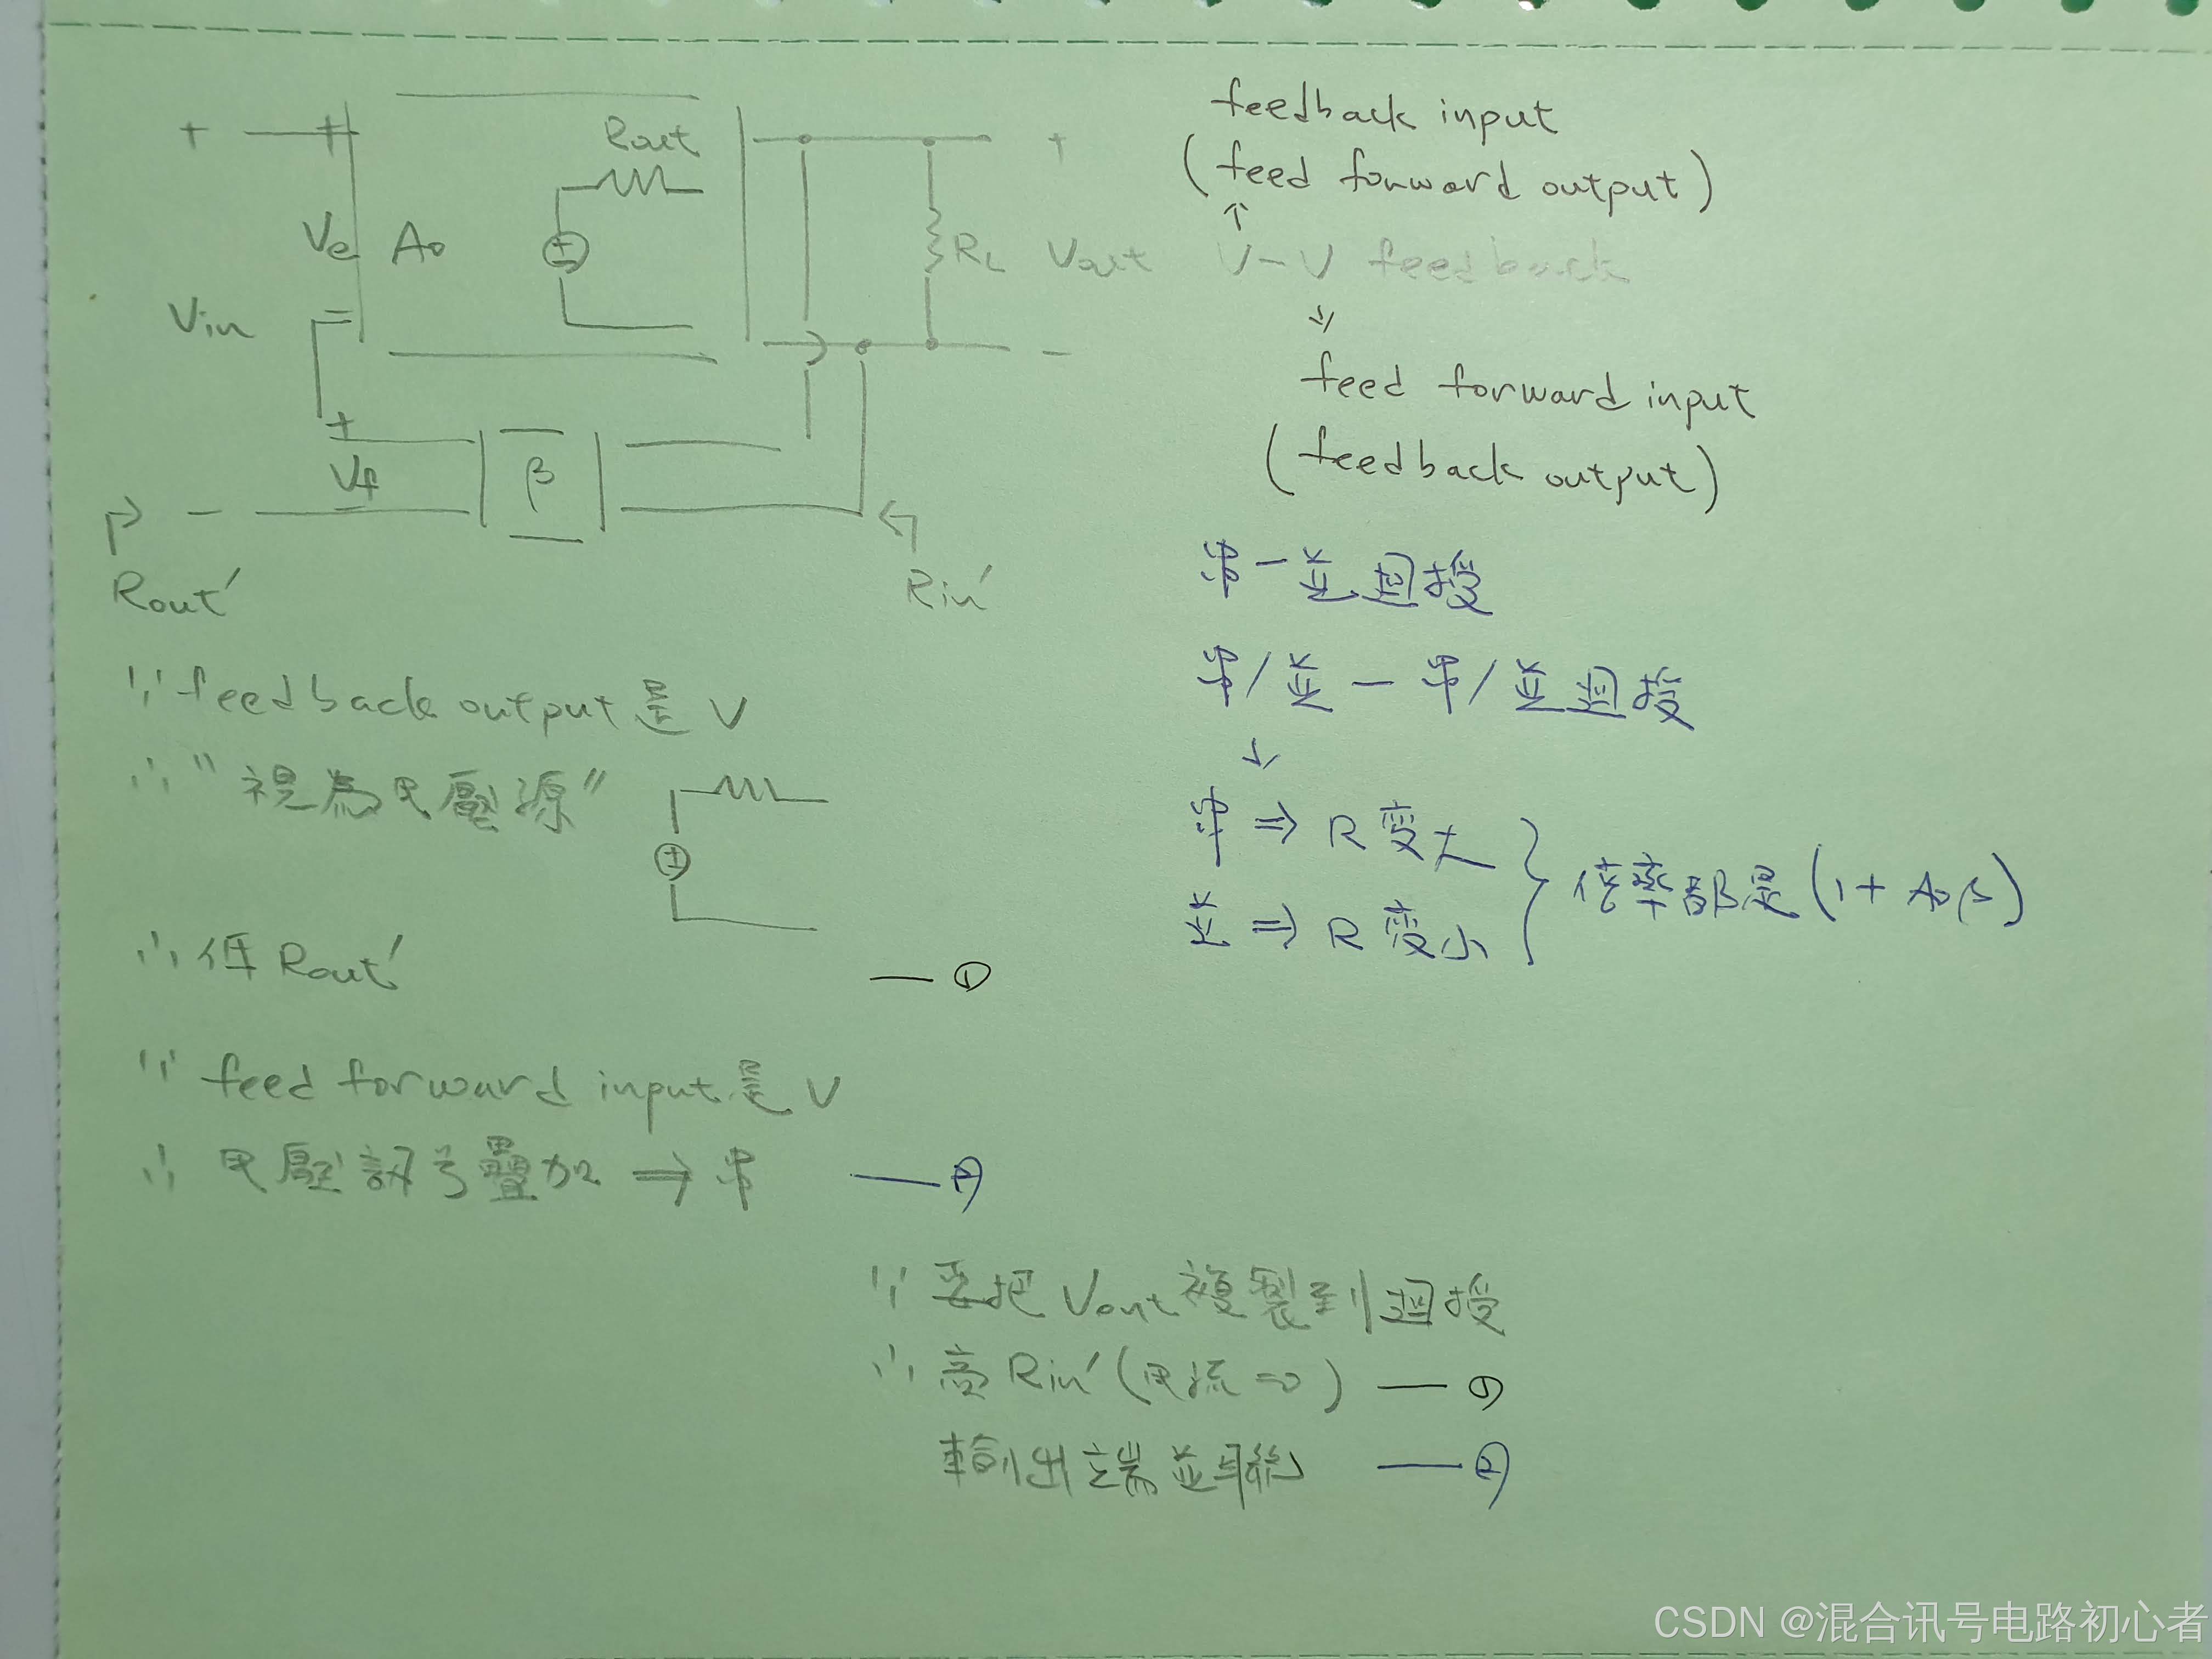 feedback input
(feed forward output)
↑
V-V feedback
↓
feed forward input
(feedback output)
+
+
Rout
+
Ve
A0
±
RL
Vout
Vin
=
-
+
Vf
β
-
-
Rout'
Rin'
∵ feedback output 是 V
∴ "視為电壓源"
±
∴ 低 Rout' — ①
∵ feed forward input 是 V
∴ 电壓訊号疊加 ⇒ 串 — ②
串-並迴授
串/並-串/並迴授
↓
串 ⇒ R 变大
並 ⇒ R 变小
倍率都是(1+A0β)
∵ 要把 Vout 複製到迴授
∴ 高 Rin'(电流=0) — ①
輸出端並聯 — ②
CSDN @混合讯号电路初心者